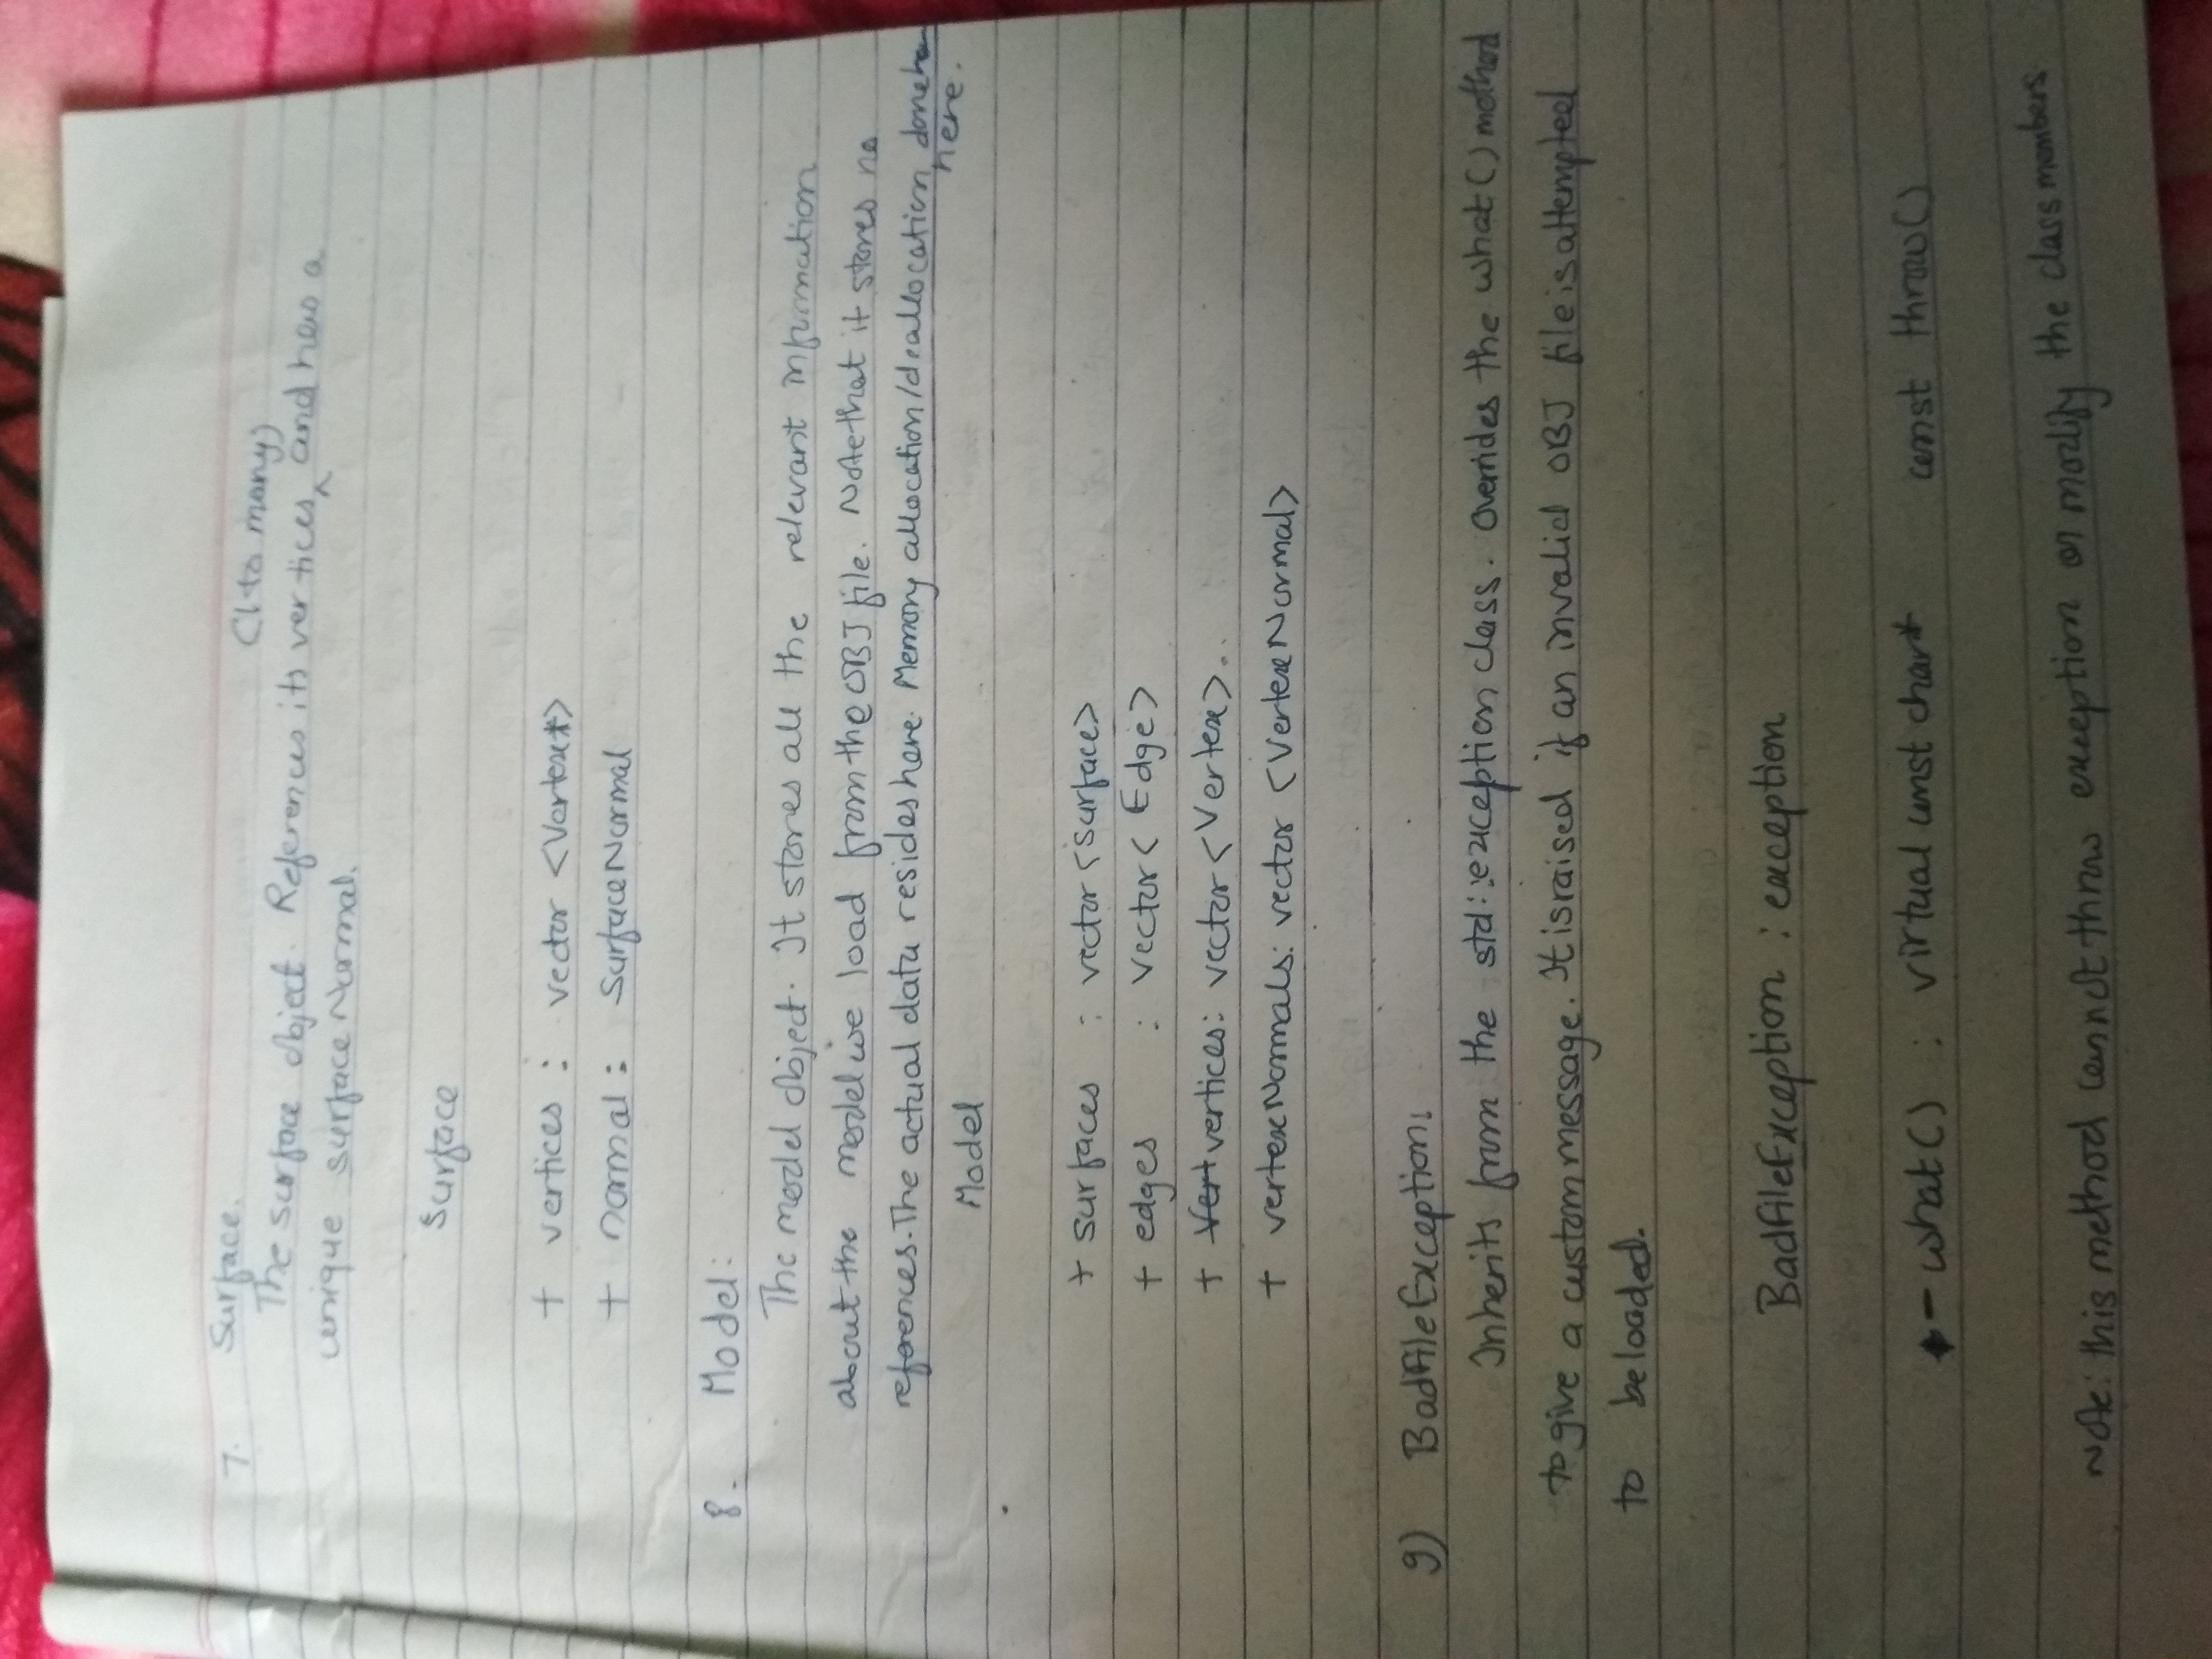 7. Surface.
(1 to many)
The surface object. References its vertices ^ and has a
unique surface Normal.
Surface
+ vertices : vector <Vertex*>
+ normal : SurfaceNormal
8. Model:
The model object. It stores all the relevant information
about the model we load from the OBJ file. Note that it stores no
references. The actual data resides here. Memory allocation/deallocation done
here.
Model
+ surfaces : vector <surface>
+ edges : vector < Edge >
+ Vert vertices: vector <Vertex>
+ vertexNormals: vector <VertexNormal>
9) BadFileException:
Inherits from the std::exception class. Overrides the what() method
to give a custom message. It is raised if an invalid OBJ file is attempted
to be loaded.
BadFileException : exception
- what() : virtual const char* const throw()
Note: this method cannot throw exception or modify the class members